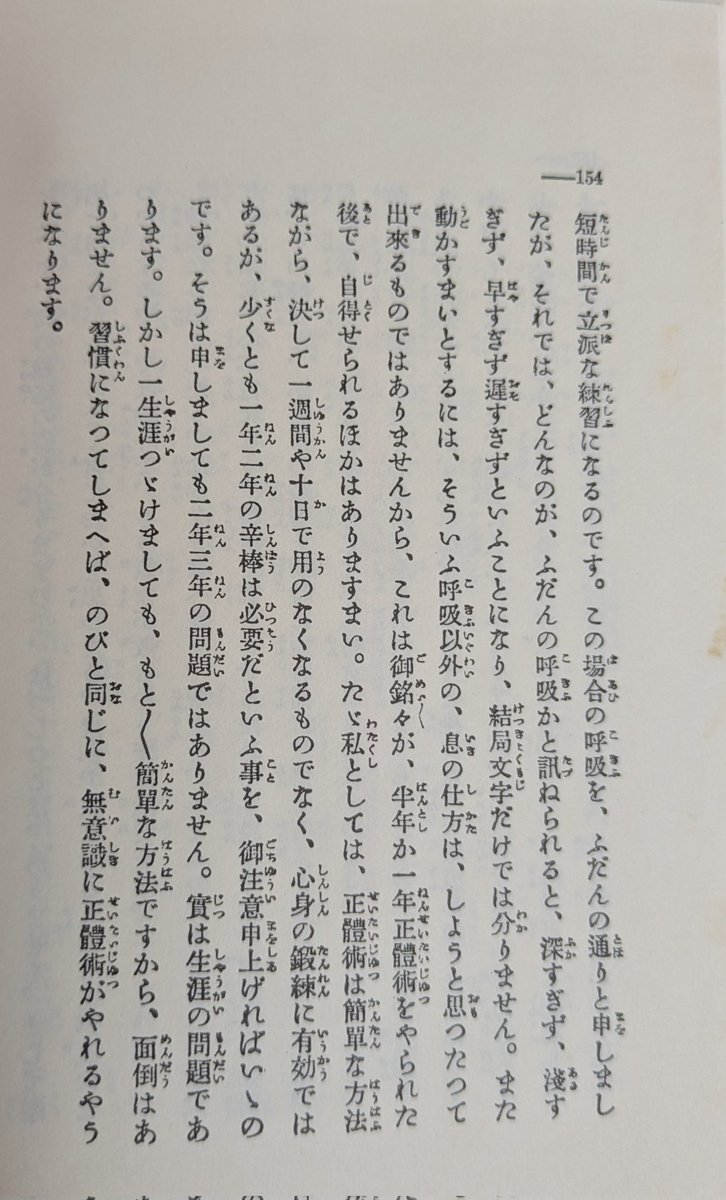 154
短時間で立派な練習になるのです。この場合の呼吸を、ふだんの通りと申しまし
たが、それでは、どんなのが、ふだんの呼吸かと訊ねられると、深すぎず、淺す
ぎず、早すぎず遲すぎずといふことになり、結局文字だけでは分りません。また
動かすまいとするには、そういふ呼吸以外の、息の仕方は、しようと思つたつて
出來るものではありませんから、これは御銘々が、半年か一年正體術をやられた
後で、自得せられるほかはありますまい。たゞ私としては、正體術は簡單な方法
ながら、決して一週間や十日で用のなくなるものでなく、心身の鍛練に有効では
あるが、少くとも一年二年の辛棒は必要だといふ事を、御注意申上げればいゝの
です。そうは申しましても二年三年の問題ではありません。實は生涯の問題であ
ります。しかし一生涯つゞけましても、もと〱簡單な方法ですから、面倒はあ
りません。習慣になつてしまへば、のびと同じに、無意識に正體術がやれるやう
になります。